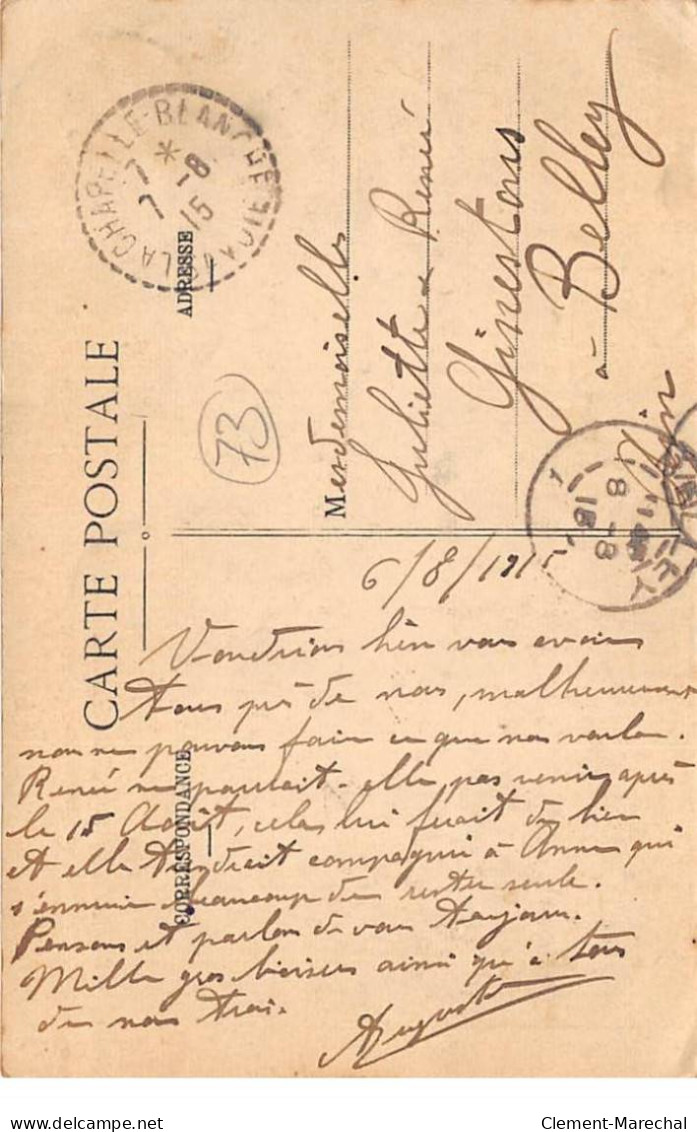 CARTE POSTALE
CORRESPONDANCE
ADRESSE
LA CHAPELLE-BLANCHE SAVOIE
7 * 
7 -8
15
73
Mesdemoiselles
Juliette & Renée
Ginestous
à Belley
Ain
BELLEY
8 -8
15
6/8/1915
Voudrions bien vous avoir
tous près de nous, malheureusement
nous ne pouvons faire ce que nous voulons.
Renée ne pourrait-elle pas venir après
le 15 Août, cela lui ferait du bien
et elle tiendrait compagnie à Anna qui
s'ennuie beaucoup de rester seule.
Pensons et parlons de vous toujours.
Mille gros baisers ainsi qu'à tous
de nous trois.
Auguste
delcampe.net
Clement-Marechal